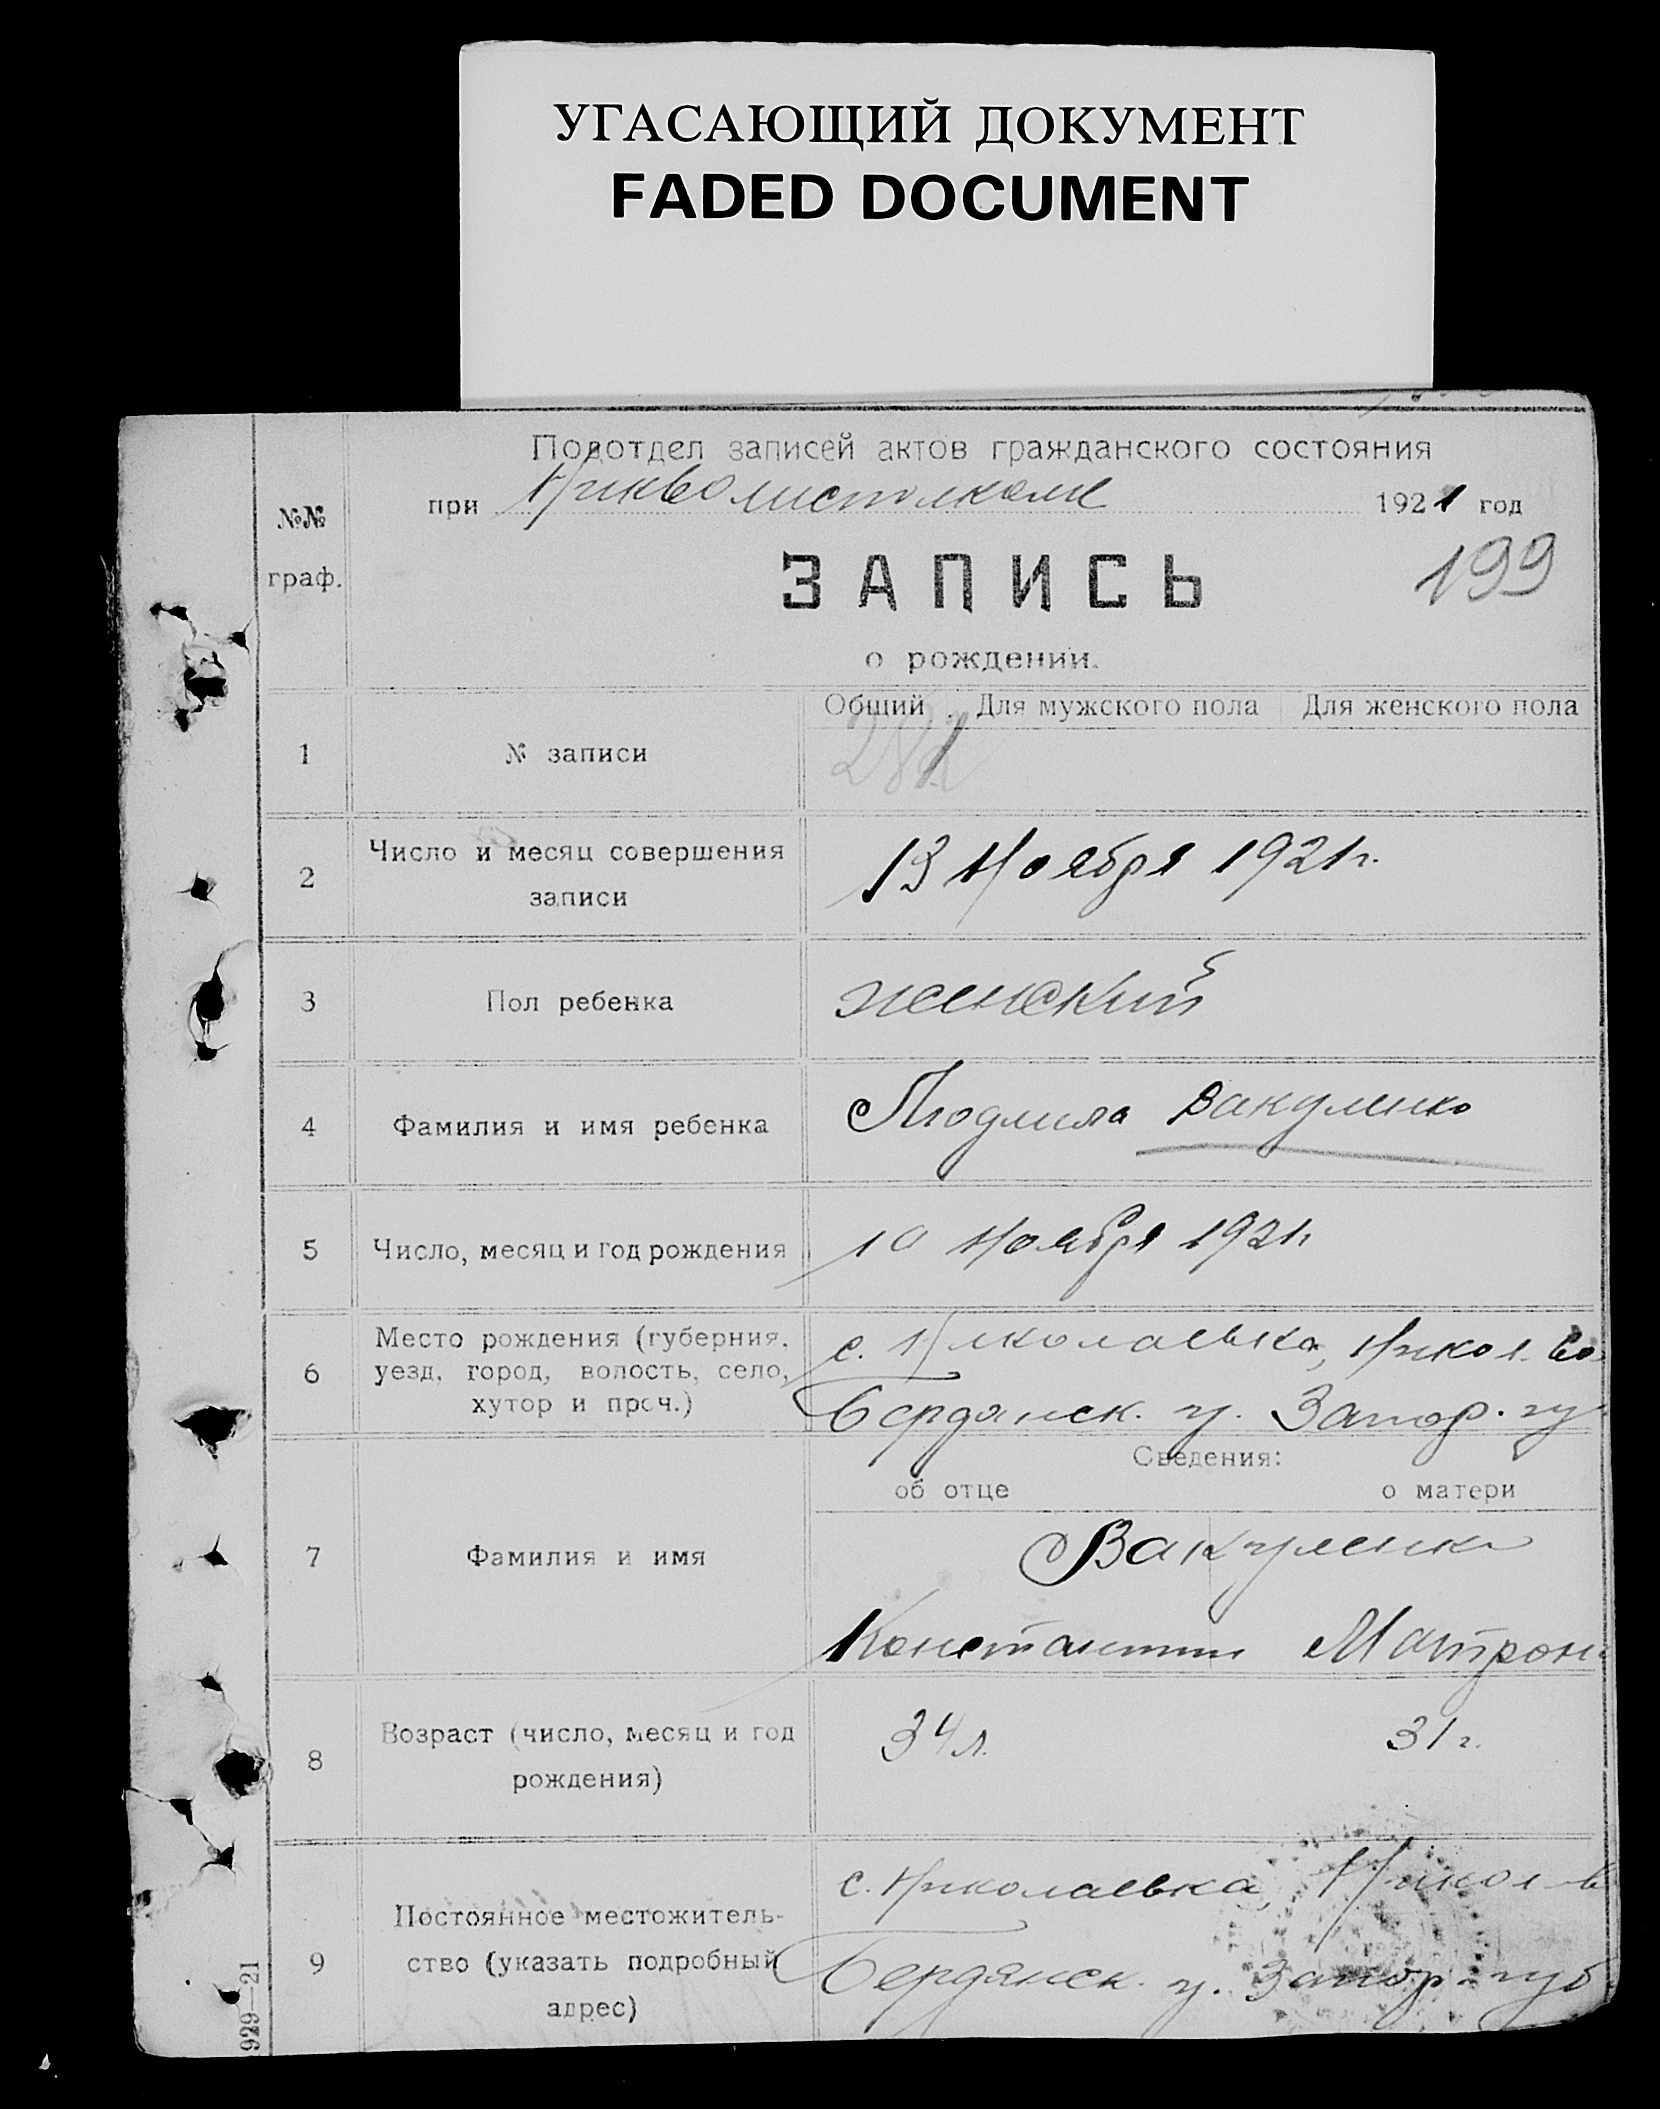 УГАСАЮЩИЙ ДОКУМЕНТ
FADED DOCUMENT
Подотдел записей актов гражданского состояния
при 1921 год
№№ граф.
199
ЗАПИСЬ
о рождении.
Общий Для мужского пола Для женского пола
1 № записи
2 Число и месяц совершения записи 13 Ноября 1921 г.
3 Пол ребенка женский
4 Фамилия и имя ребенка Людмила Вакуленко
5 Число, месяц и год рождения 10 Ноября 1921 г.
6 Место рождения (губерния, уезд, город, волость, село, хутор и проч.) с. Николаевка, Никол. во
Бердянск. у. Запор. гу
Сведения:
об отце о матери
7 Фамилия и имя Вакуленко
Константин Матрон
8 Возраст (число, месяц и год рождения) 34 л. 31 г.
9 Постоянное местожитель-
ство (указать подробный
адрес) с. Николаевка, Никол. в
Бердянск. у. Запор. губ
929—21